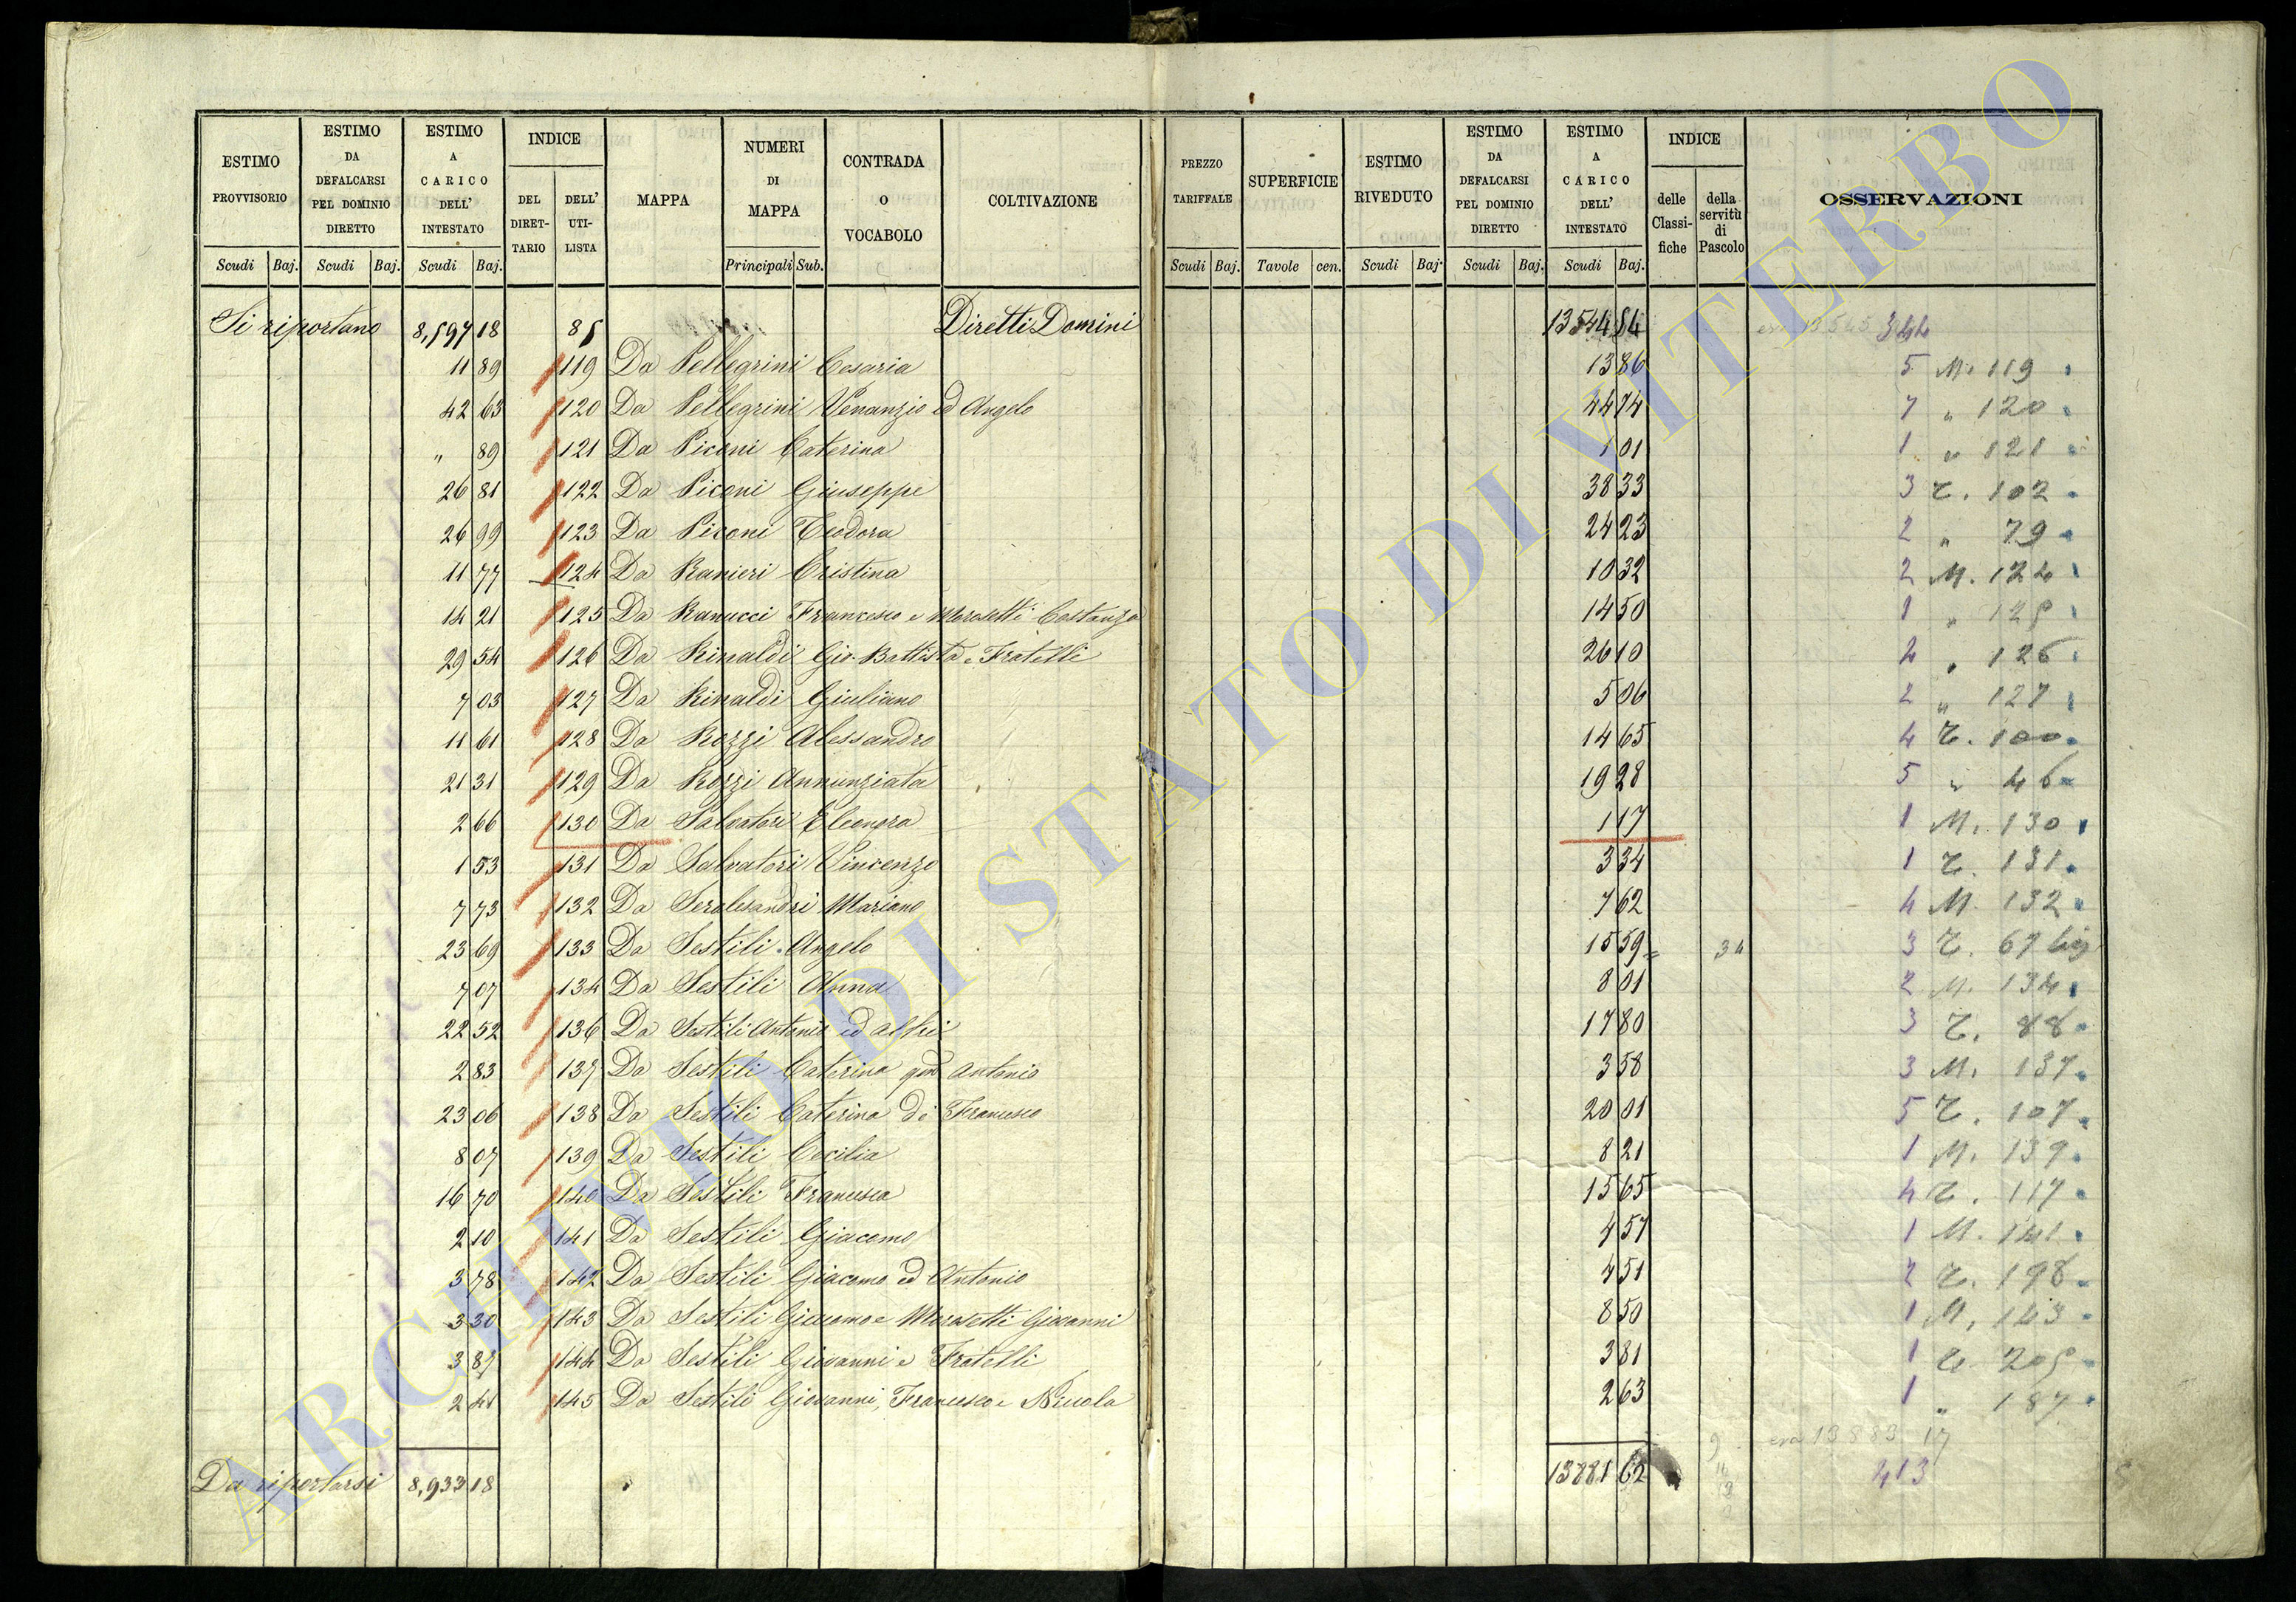 ESTIMO PROVVISORIO | ESTIMO DA DEFALCARSI PEL DOMINIO DIRETTO | ESTIMO A CARICO DELL' INTESTATO | INDICE | MAPPA | NUMERI DI MAPPA | CONTRADA O VOCABOLO | COLTIVAZIONE | PREZZO TARIFFALE | SUPERFICIE | ESTIMO RIVEDUTO | ESTIMO DA DEFALCARSI PEL DOMINIO DIRETTO | ESTIMO A CARICO DELL' INTESTATO | INDICE | OSSERVAZIONI
DEL DIRETTARIO | DELL' UTILISTA | delle Classifiche | della servitù di Pascolo
Scudi | Baj. | Scudi | Baj. | Scudi | Baj. | Principali | Sub. | Scudi | Baj. | Tavole | cen. | Scudi | Baj. | Scudi | Baj. | Scudi | Baj.
Si riportano 8,597 18 85 Diretti Domini 13544 84 era 13545 344
11 89 119 Da Pellegrini Cesaria 13 86 5 M. 119
42 63 120 Da Pellegrini Venanzio ed Angelo 44 74 7 " 120
" 89 121 Da Piconi Caterina 1 01 1 " 121
26 81 122 Da Piconi Giuseppe 38 33 3 T. 102
26 99 123 Da Piconi Teodora 24 23 2 " 79
11 77 124 Da Ranieri Cristina 10 32 2 M. 124
14 21 125 Da Ranucci Francesco e Morosetti Costanza 14 50 1 " 125
29 54 126 Da Rinaldi Gio. Battista e Fratelli 26 10 2 " 126
7 03 127 Da Rinaldi Giuliano 5 06 2 " 127
11 61 128 Da Rozzi Alessandro 14 65 4 T. 100
21 31 129 Da Rozzi Annunziata 19 28 5 " 46
2 66 130 Da Salvatori Eleonora 1 17 1 M. 130
1 53 131 Da Salvatori Vincenzo 3 34 1 T. 131
7 73 132 Da Seralesandri Mariano 7 62 4 M. 132
23 69 133 Da Sestili Angelo 15 59 34 3 T. 67 bis
7 07 134 Da Sestili Anna 8 01 2 M. 134
22 52 136 Da Sestili Antonio ed altri 17 80 3 T. 88
2 83 137 Da Sestili Caterina qm Antonio 3 58 3 M. 137
23 06 138 Da Sestili Caterina di Francesco 20 01 5 T. 107
8 07 139 Da Sestili Cecilia 8 21 1 M. 139
16 70 140 Da Sestili Francesca 15 65 4 T. 117
2 10 141 Da Sestili Giacomo 4 57 1 M. 141
3 78 142 Da Sestili Giacomo ed Antonio 4 51 2 T. 198
3 30 143 Da Sestili Giacomo e Morosetti Giovanni 8 50 1 M. 143
3 87 144 Da Sestili Giovanni e Fratelli 3 81 1 T. 205
2 41 145 Da Sestili Giovanni, Francesco e Nicola 2 63 1 " 187
era 13883 17
Da riportarsi 8,933 18 13881 62 413
ARCHIVIO DI STATO DI VITERBO